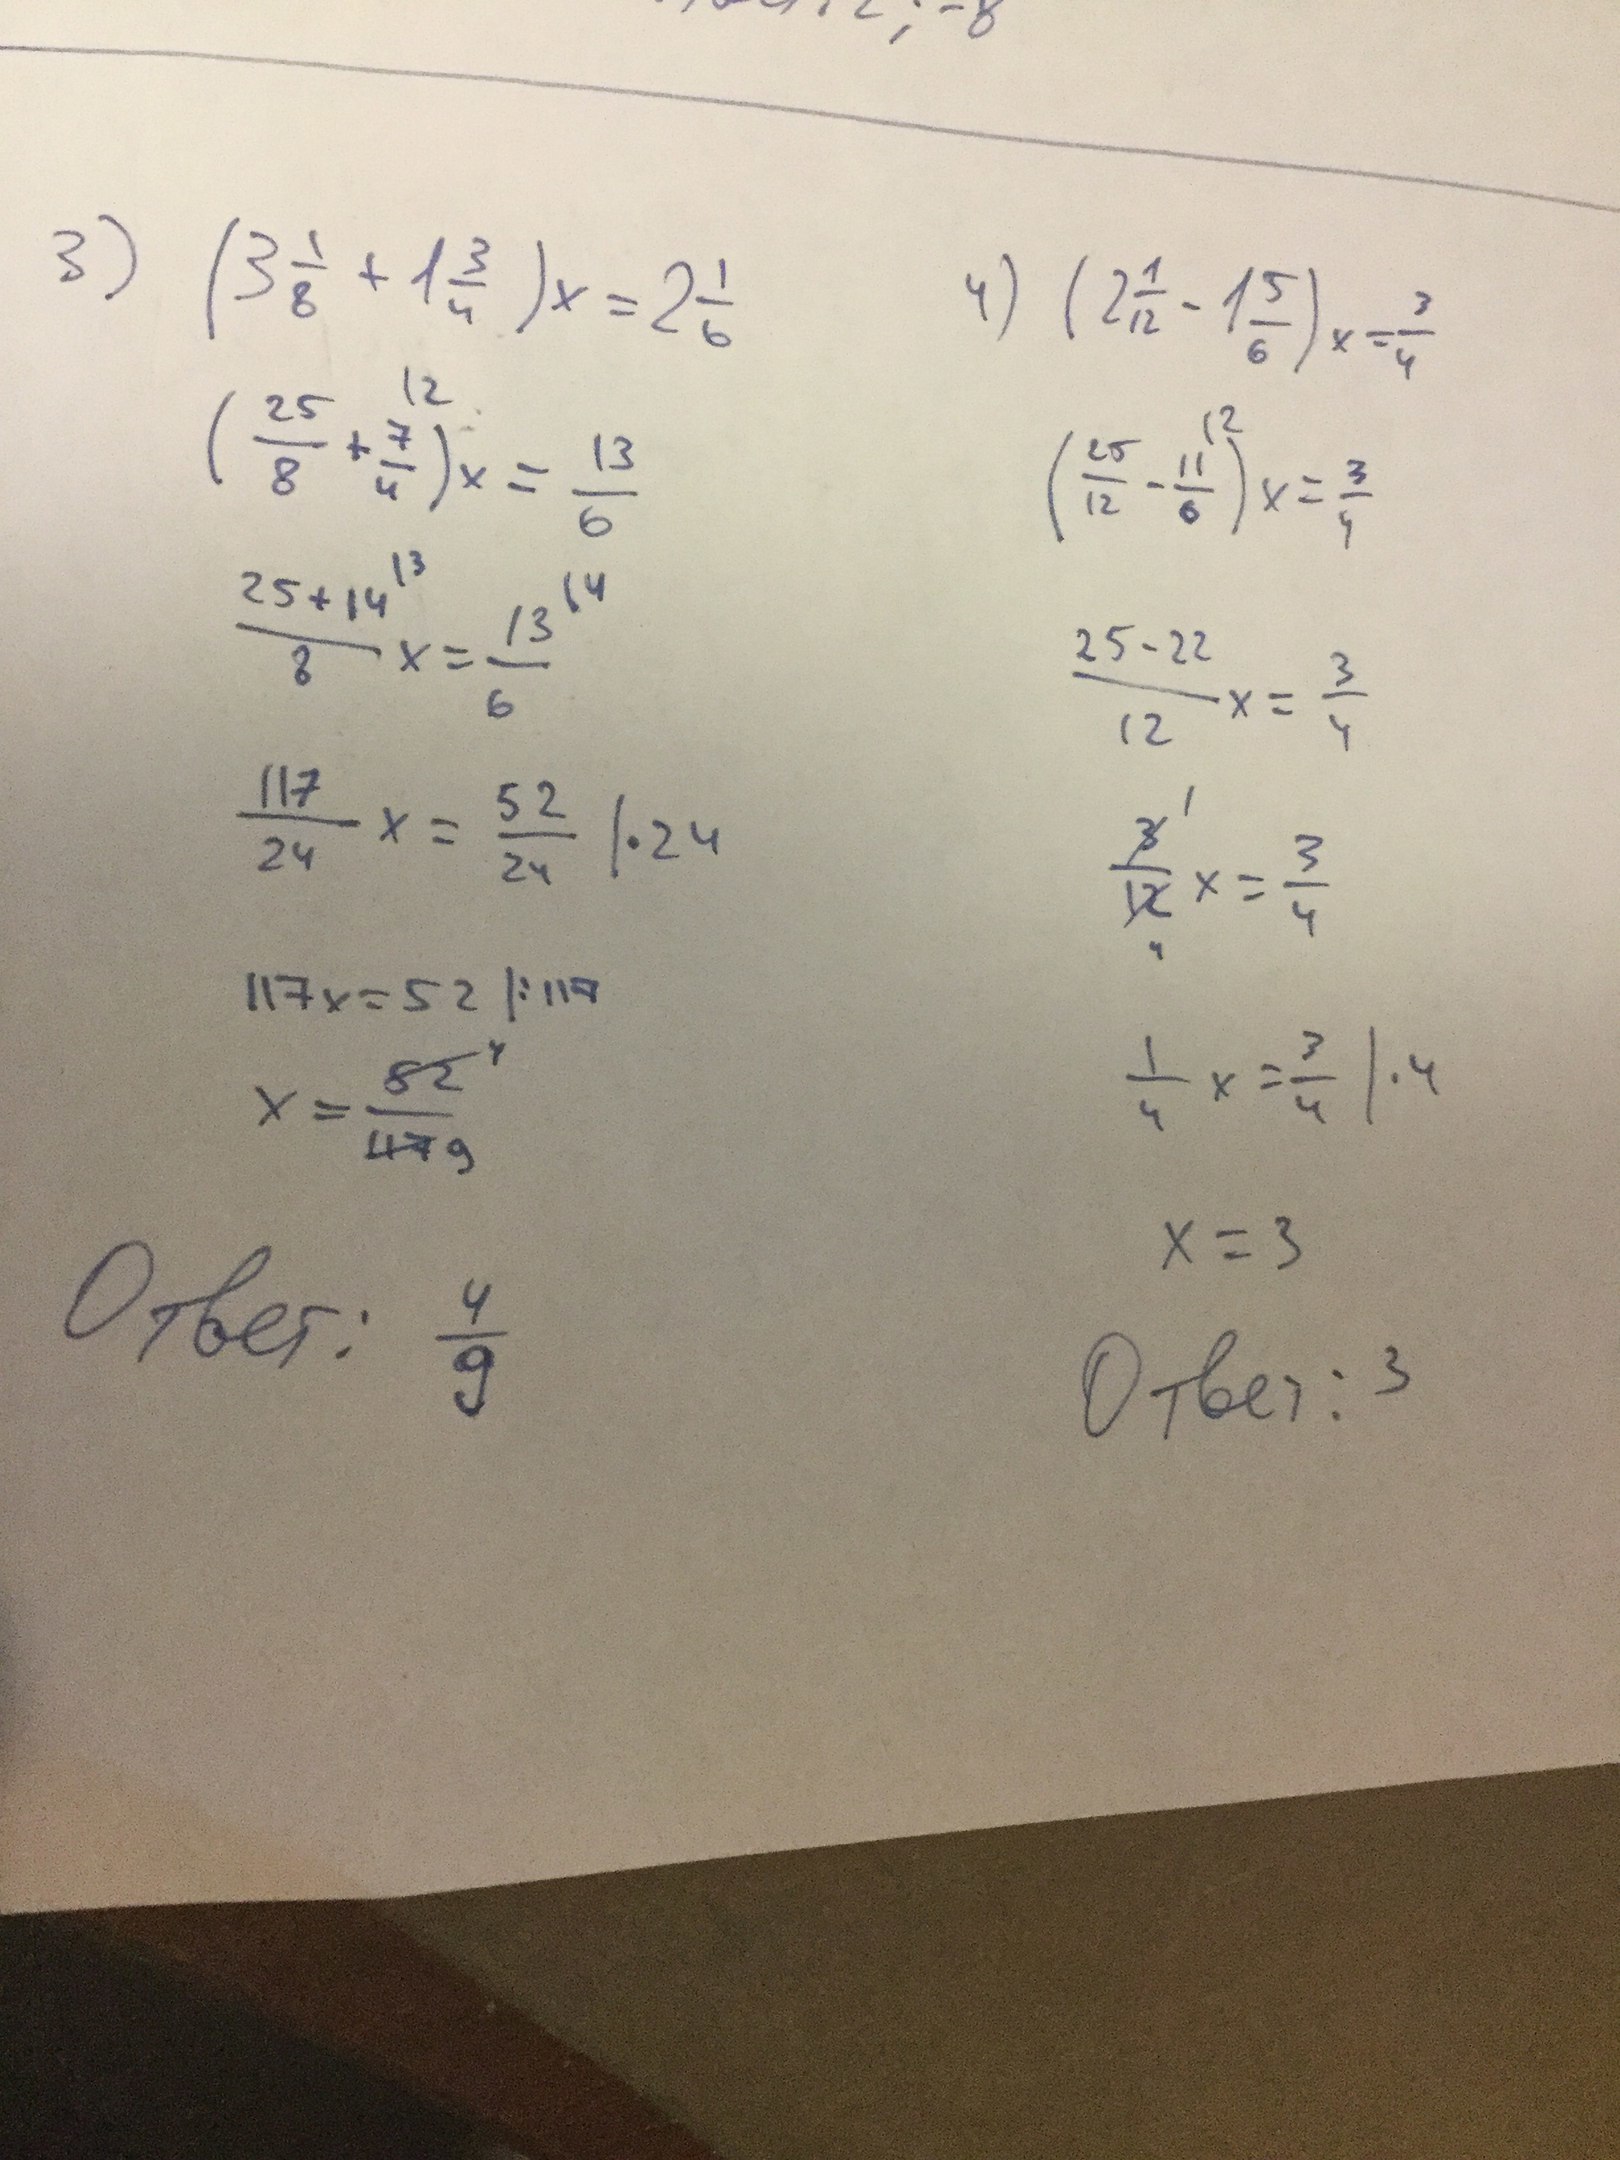 ; -8
3) (3 1/8 + 1 3/4)x = 2 1/6
(25/8 + 7/4 |2)x = 13/6
(25+14)/8 |3 x = 13/6 |4
117/24 x = 52/24 |·24
117x = 52 |:117
x = 52/117 4 9
Ответ: 4/9
4) (2 1/12 - 1 5/6)x = 3/4
(25/12 - 11/6 |2)x = 3/4
(25-22)/12 x = 3/4
3/12 1 4 x = 3/4
1/4 x = 3/4 |·4
x = 3
Ответ: 3